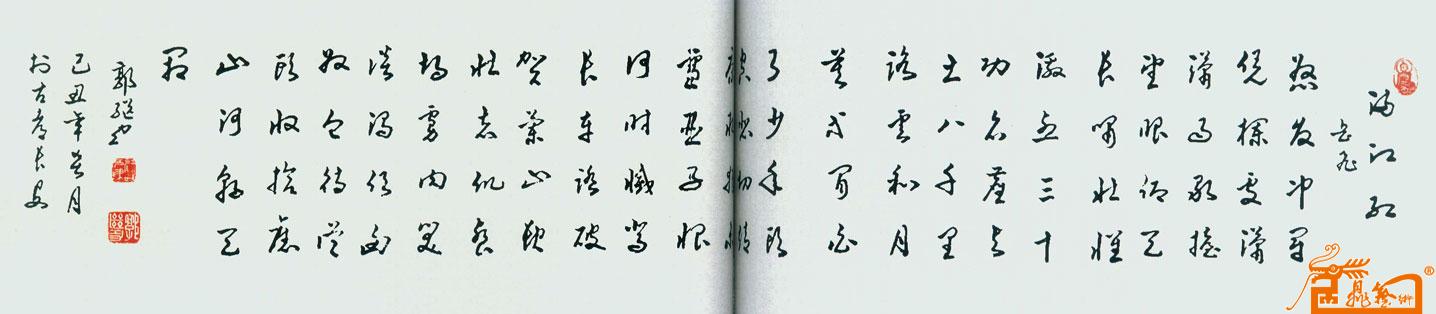 满江红
岳飞
怒发冲冠
凭栏处潇
潇雨歇抬
望眼仰天
长啸壮怀
激烈三十
功名尘与
土八千里
路云和月
莫等闲白
了少年头
空悲切靖
康耻犹未
雪臣子恨
何时滅驾
长车踏破
贺兰山缺
壮志饥餐
胡虏肉笑
谈渴饮匈
奴血待从
头收拾旧
山河朝天
阙
郭继
己丑年月
於古都长安